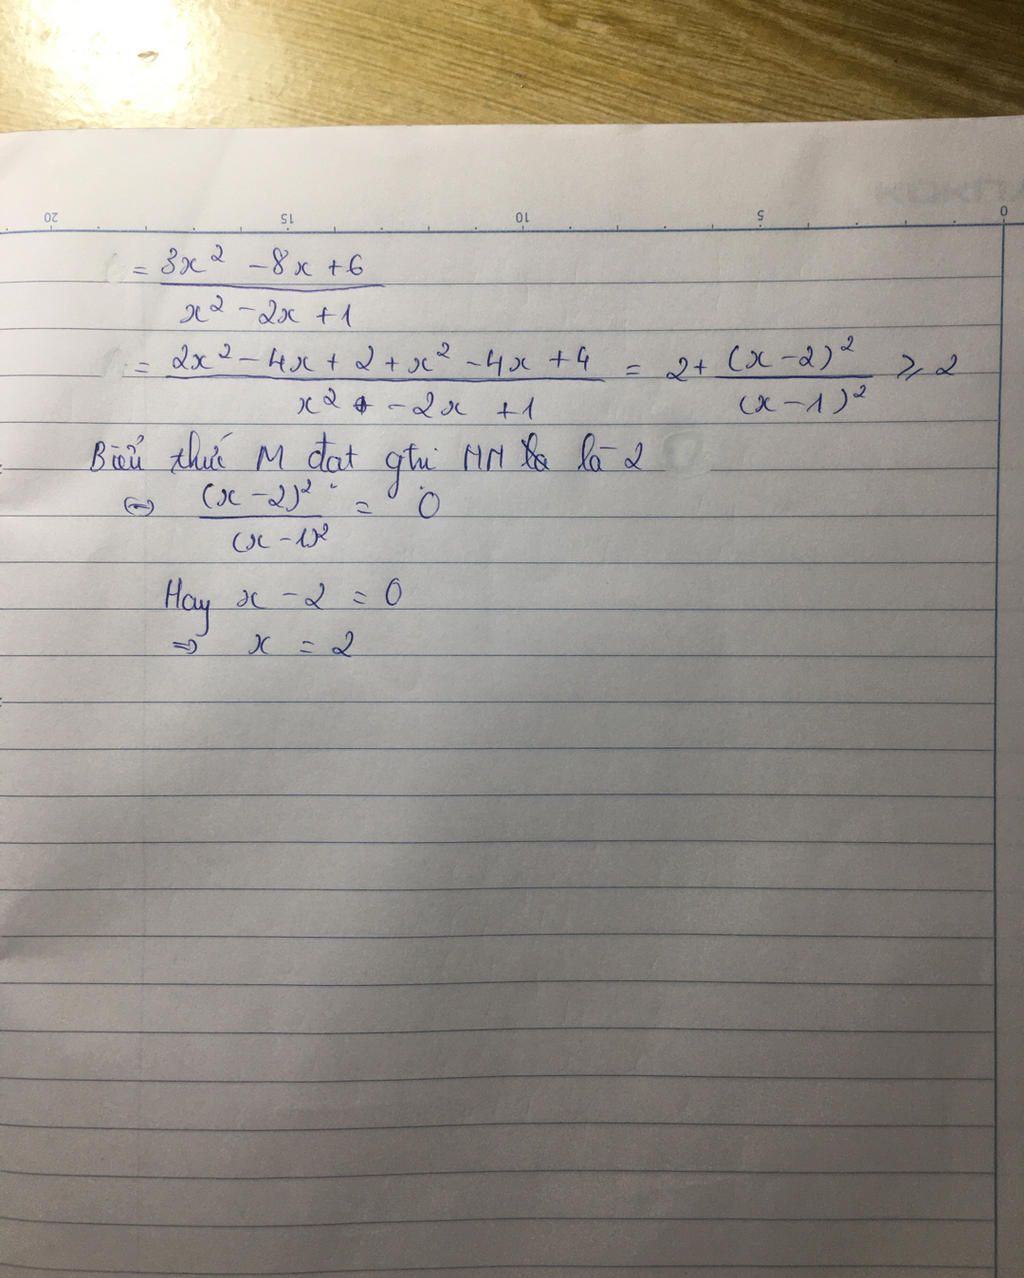 20 15 10 5 0
= 3x² - 8x + 6 / x² - 2x + 1
= 2x² - 4x + 2 + x² - 4x + 4 / x² - 2x + 1 = 2 + (x - 2)² / (x - 1)² ⩾ 2
Biểu thức M đạt gtri NN là 2
⇔ (x - 2)² / (x - 1)² = 0
Hay x - 2 = 0
⇒ x = 2